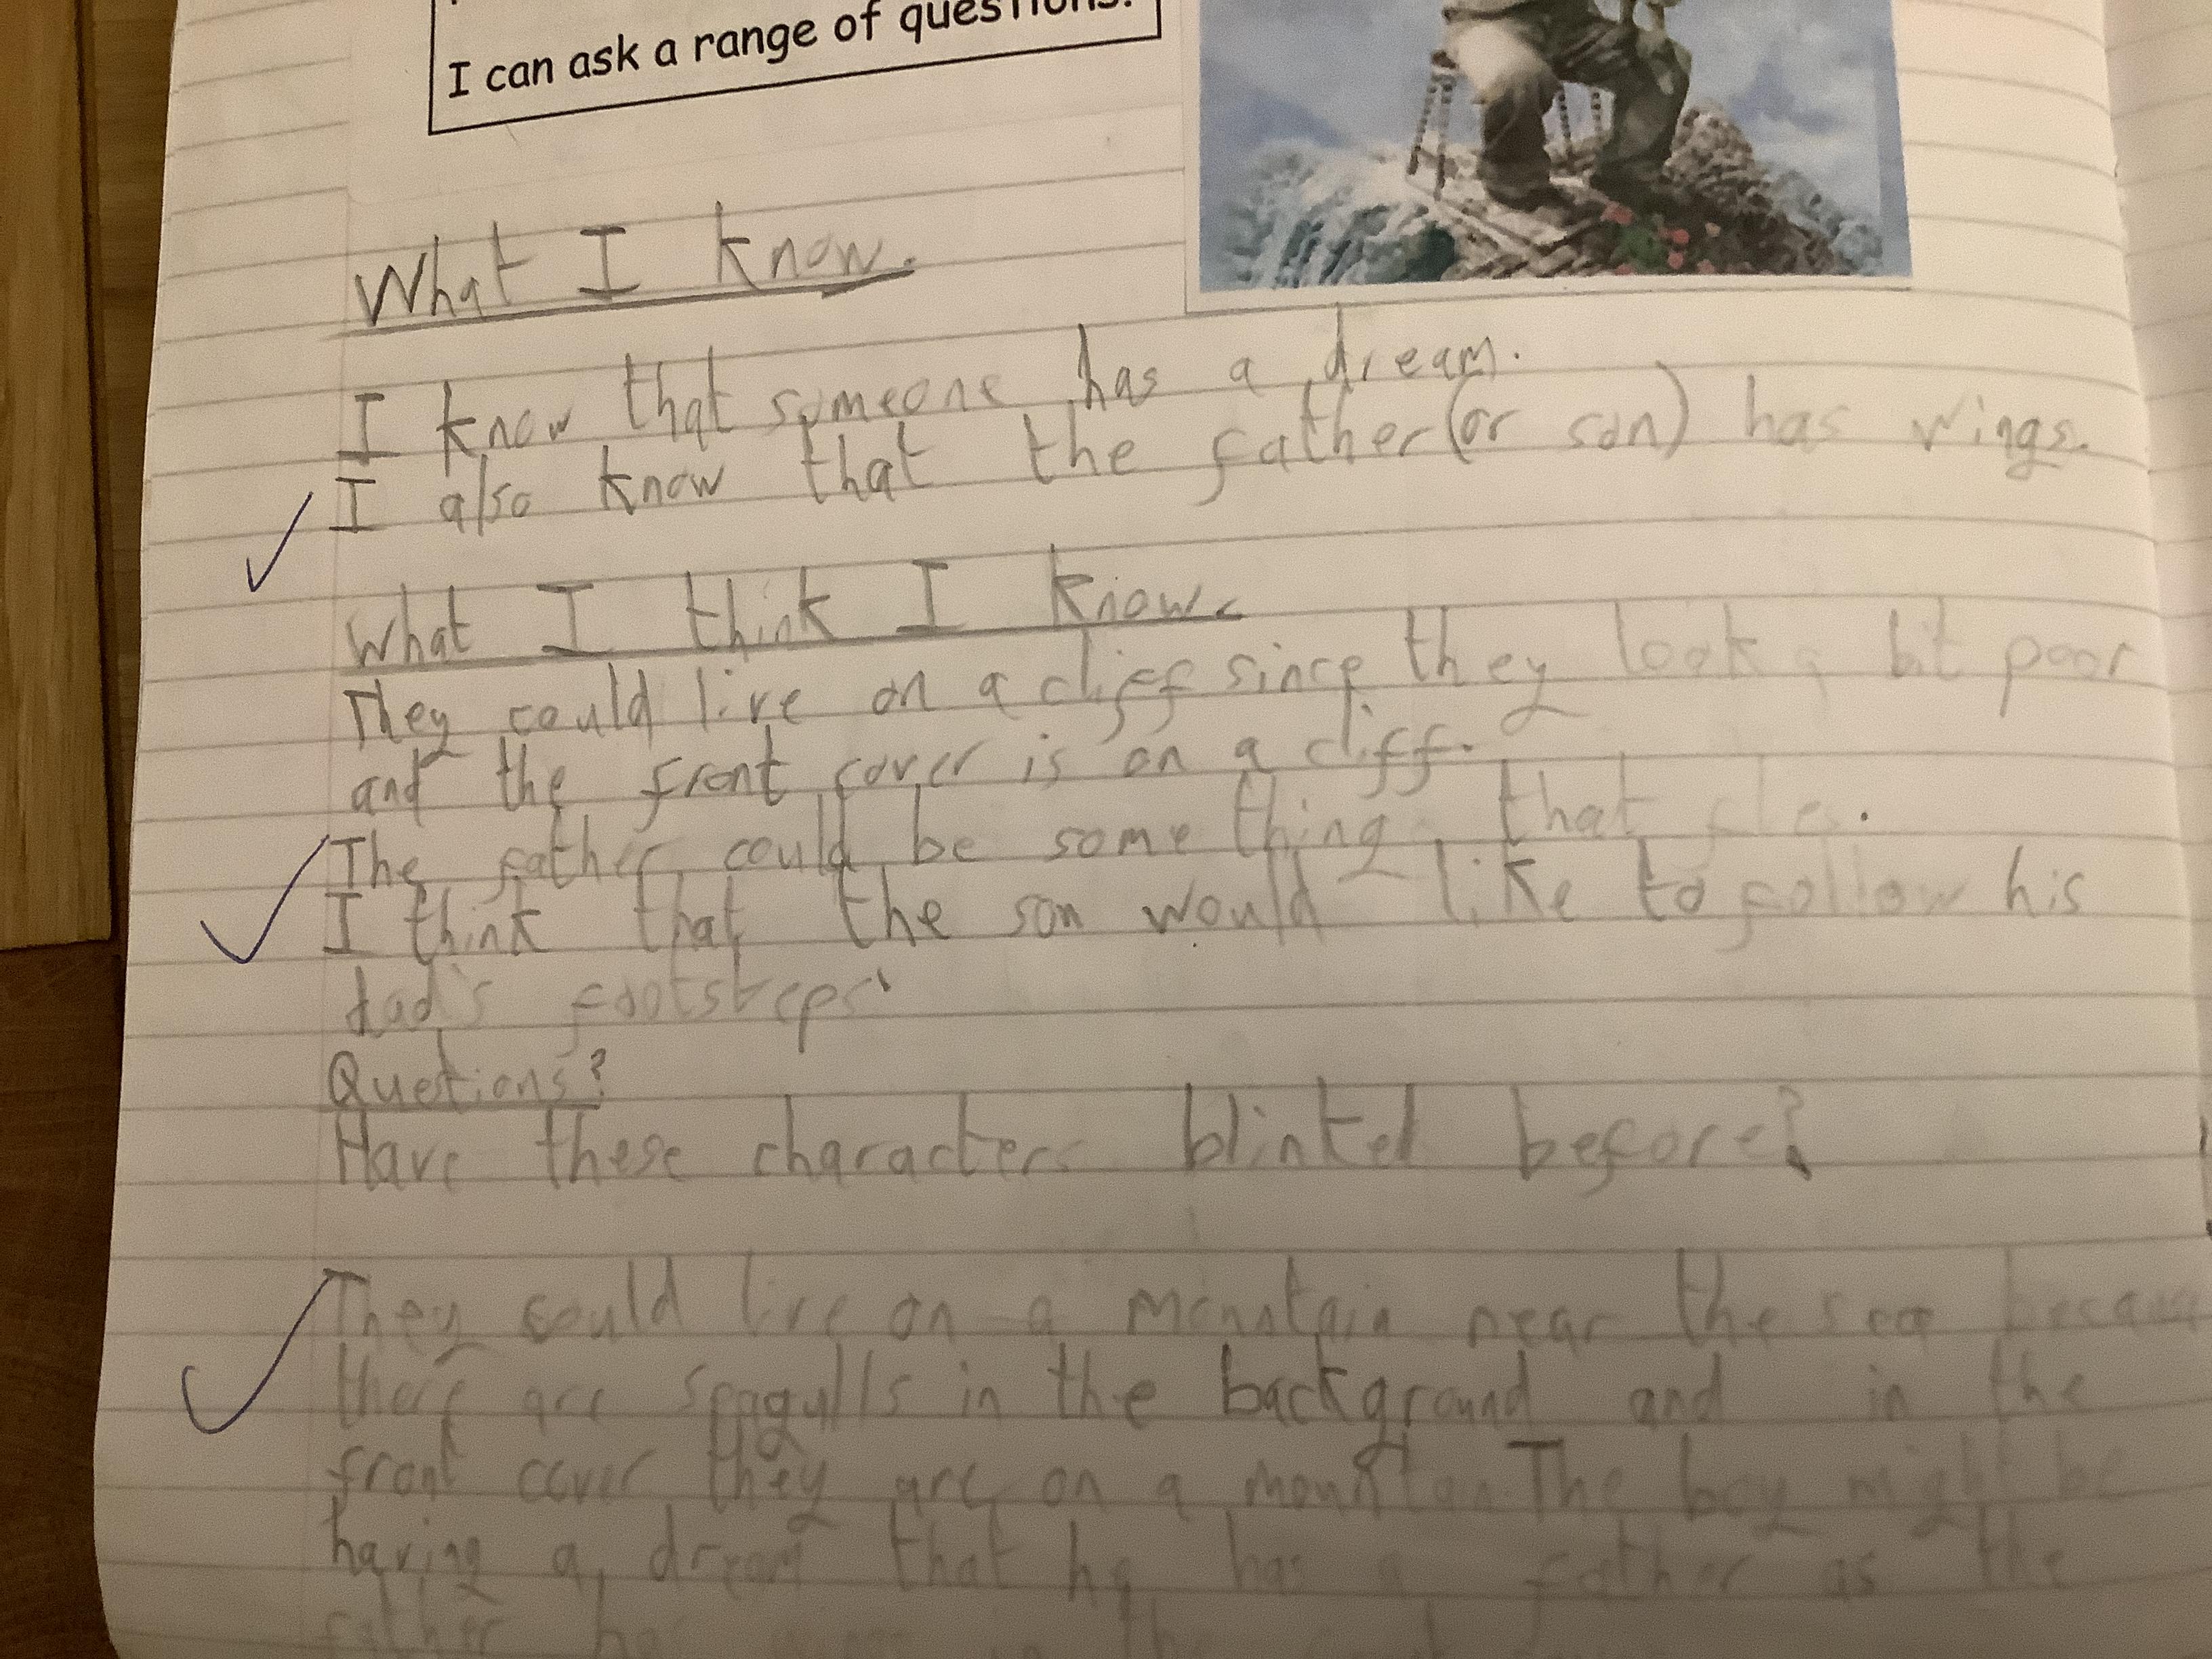 I can ask a range of questions.
What I know.
I know that someone has a dream.
I also know that the father (or son) has wings.
What I think I know.
They could live on a cliff since they look a bit poor
and the front cover is on a cliff.
The father could be some thing that flies.
I think that the son would like to follow his
dad's footsteps.
Questions?
Have these characters blinked before?
They could live on a mountain near the sea
there are seagulls in the background and in the
front cover they are on a The boy might be
having a dream that he has a father as the
father the